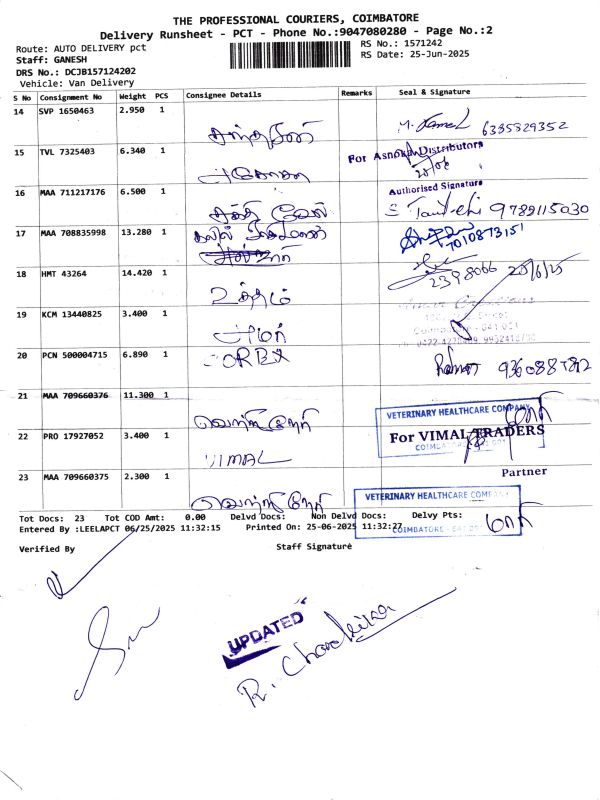 THE PROFESSIONAL COURIERS, COIMBATORE
Delivery Runsheet - PCT - Phone No.:9047080280 - Page No.:2
Route: AUTO DELIVERY pct
RS No.: 1571242
Staff: GANESH
RS Date: 25-Jun-2025
DRS No.: DCJB157124202
Vehicle: Van Delivery
S No Consignment No Weight PCS Consignee Details Remarks Seal & Signature
14 SVP 1650463 2.950 1 6335829352
15 TVL 7325403 6.340 1 For Ashoka Distributors
Authorised Signature
16 MAA 711217176 6.500 1 சக்தி வேல் 9789115030
17 MAA 708835998 13.280 1 7010873151
18 HMT 43264 14.420 1 உத்தமம் 2398066 25/6/25
19 KCM 13440825 3.400 1 அமர்
20 PCN 500004715 6.890 1 CORBEX Raman
21 MAA 709660376 11.300 1 வெற்றி நேரி VETERINARY HEALTHCARE COMPANY
22 PRO 17927052 3.400 1 VIMAL For VIMAL TRADERS
Partner
23 MAA 709660375 2.300 1 வெற்றி நேரி VETERINARY HEALTHCARE COMPANY
COIMBATORE
Tot Docs: 23 Tot COD Amt: 0.00 Delvd Docs: Non Delvd Docs: Delvy Pts:
Entered By :LEELAPCT 06/25/2025 11:32:15 Printed On: 25-06-2025 11:32:27
Verified By Staff Signature
UPDATED